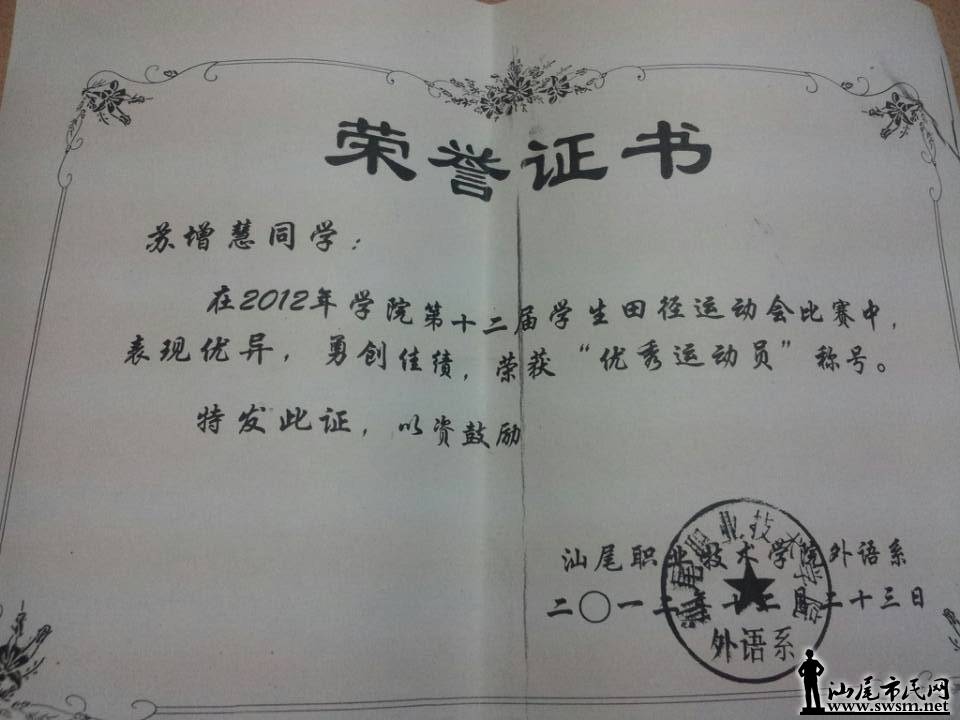 荣誉证书
苏增慧同学：
在2012年学院第十二届学生田径运动会比赛中，
表现优异，勇创佳绩，荣获“优秀运动员”称号。
特发此证，以资鼓励
汕尾职业技术学院外语系
二〇一二年十二月二十三日
汕尾职业技术学院
外语系
汕尾市民网
www.swsm.net